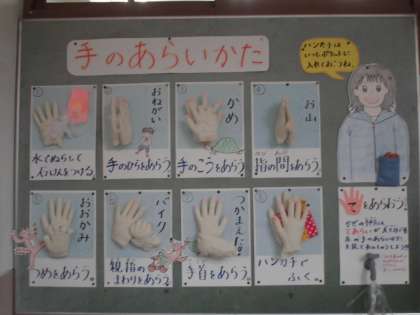 手のあらいかた
ハンカチは
いつもポケットに
入れておこうね。
①
水でぬらして
石けんをつける
②
おねがい
手のひらをあらう
③
かめ
手のこうをあらう
④
お山
指の間をあらう
おおかみ
つめをあらう
バイク
親指の
まわりをあらう
つかまえた!
手首をあらう
ハンカチで
ふく
手をあらおう!